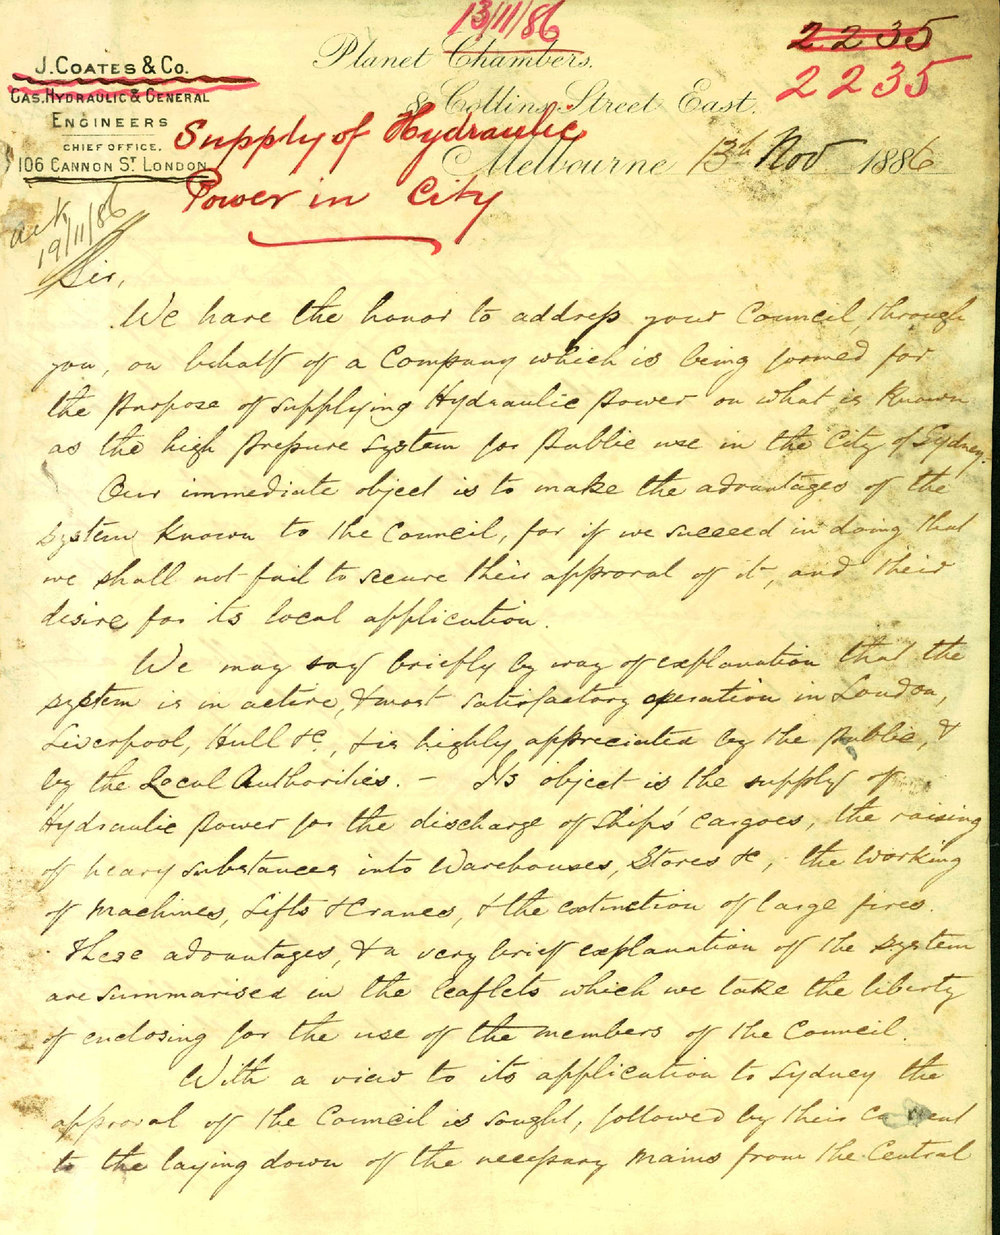 13/11/86
2235
2235
J. COATES & CO.
GAS, HYDRAULIC & GENERAL
ENGINEERS
CHIEF OFFICE.
106 CANNON ST. LONDON
Planet Chambers,
8 Collins Street East.
Melbourne 13th Nov 1886
Supply of Hydraulic
Power in City
ack
19/11/86
Sir,
We have the honor to address your Council, through
you, on behalf of a Company which is being formed for
the purpose of supplying Hydraulic Power on what is known
as the high pressure system for Public use in the City of Sydney.
Our immediate object is to make the advantages of the
system known to the Council, for if we succeed in doing that
we shall not fail to secure their approval of it, and their
desire for its local application.
We may say briefly by way of explanation that the
system is in active, & most satisfactory operation in London,
Liverpool, Hull &c, & is highly appreciated by the Public, &
by the Local Authorities. – Its object is the supply of
Hydraulic Power for the discharge of Ships' Cargoes, the raising
of heavy substances into Warehouses, Stores &c, the working
of Machines, Lifts & Cranes, & the extinction of large fires.
These advantages, & a very brief explanation of the system
are summarised in the leaflets which we take the liberty
of enclosing for the use of the members of the Council.
With a view to its application to Sydney the
approval of the Council is sought, followed by their consent
to the laying down of the necessary mains from the Central